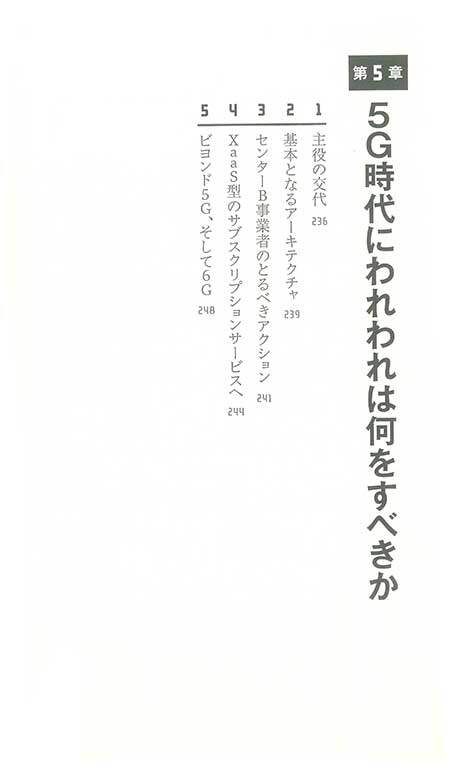 第5章
5G時代にわれわれは何をすべきか
1 主役の交代 236
2 基本となるアーキテクチャ 239
3 センターB事業者のとるべきアクション 241
4 XaaS型のサブスクリプションサービスへ 244
5 ビヨンド5G、そして6G 248